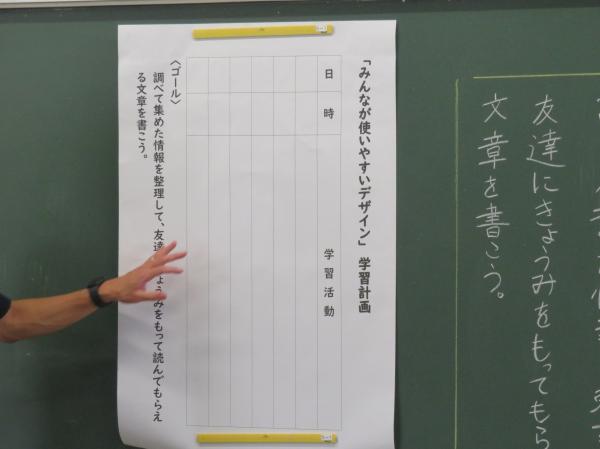 友達にきょうみをもってもら
文章を書こう。
「みんなが使いやすいデザイン」学習計画
日 時 学習活動
〈ゴール〉
調べて集めた情報を整理して、友達ょうみをもって読んでもらえ
る文章を書こう。